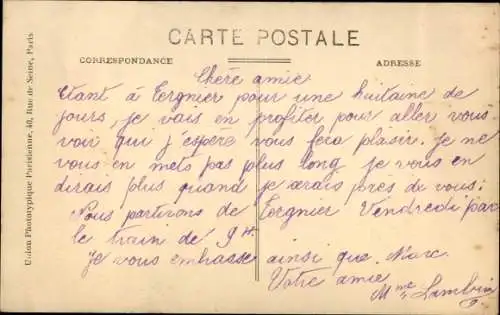 CARTE POSTALE
CORRESPONDANCE
ADRESSE
Union Phototypique Parisienne, 40, Rue de Seine, Paris
Chère amie
Etant à Tergnier pour une huitaine de
jours, je vais en profiter pour aller vous
voir qui j'espère vous fera plaisir. Je ne
vous en mets pas plus long je vous en
dirais plus quand je serais près de vous.
Nous partirons de Tergnier Vendredi par
le train de 9H.
Je vous embrasse ainsi que Marc.
Votre amie
Mme